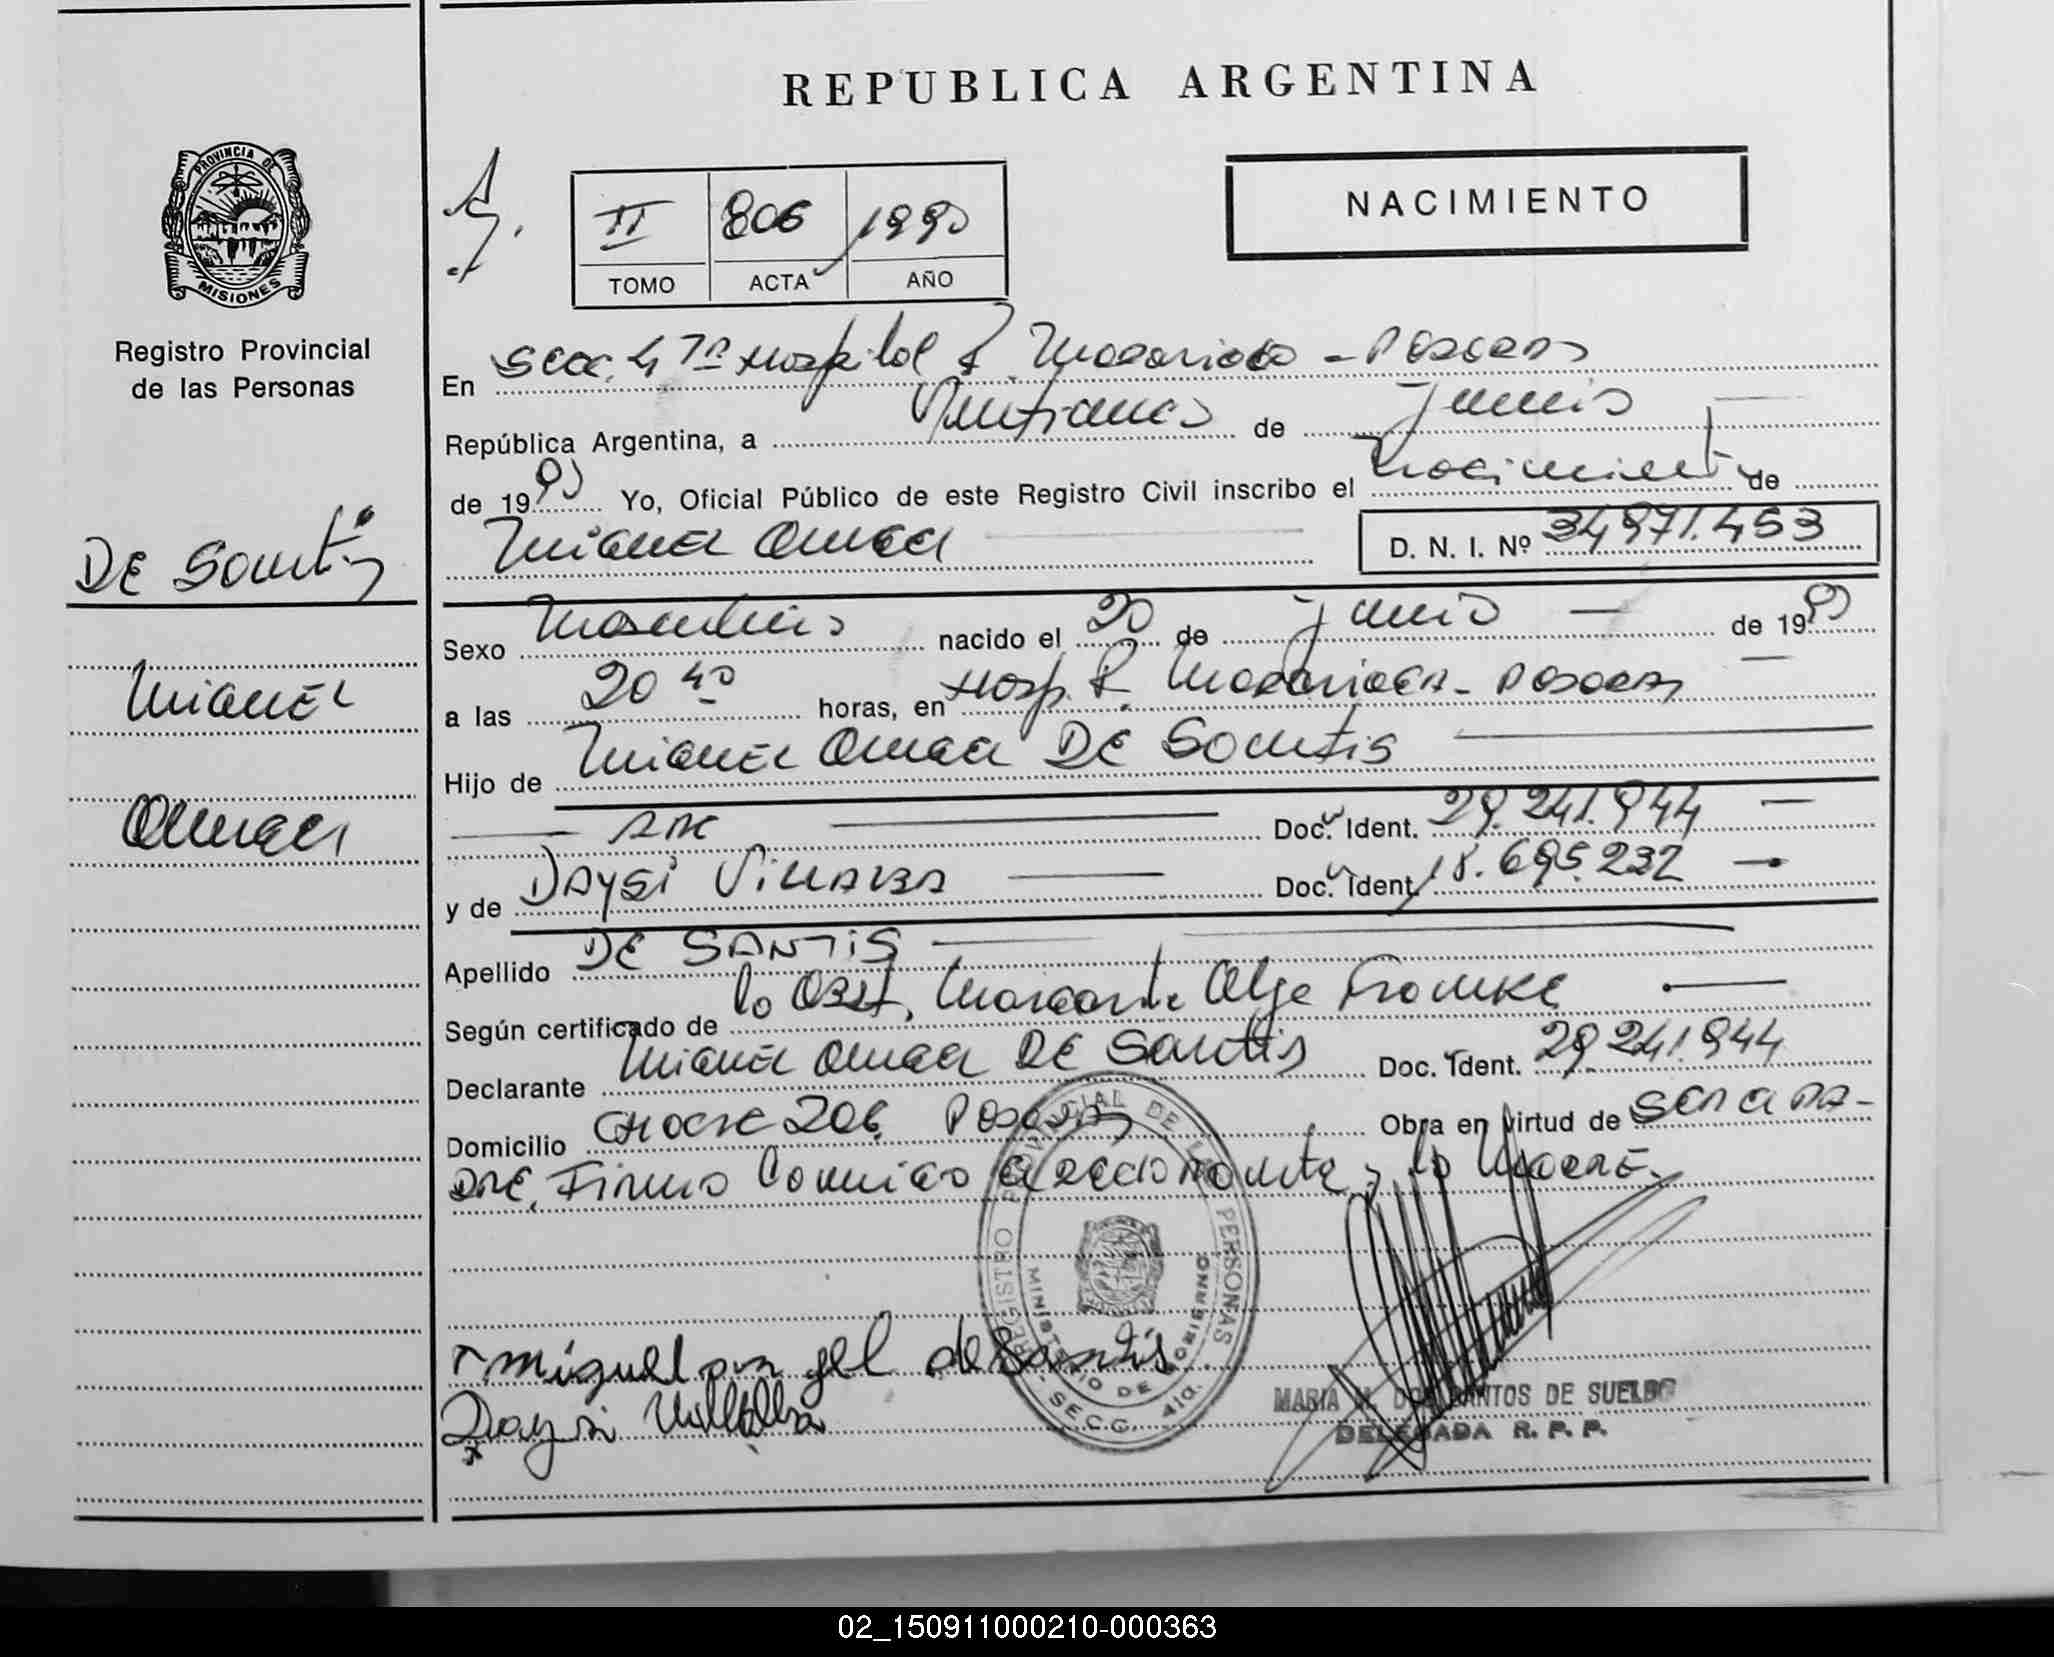 REPUBLICA ARGENTINA
PROVINCIA DE
MISIONES
Registro Provincial
de las Personas
II 806 1990
TOMO ACTA AÑO
NACIMIENTO
En Secc. 4ta Hospital R. Madariaga - Posadas
República Argentina, a Veintiuno de junio
de 1990 Yo, Oficial Público de este Registro Civil inscribo el nacimiento de
Miguel Omar D. N. I. Nº 34.971.453
De Santis
Miguel
Omar
Sexo Masculino nacido el 20 de junio de 1990
a las 20 40 horas, en Hosp. R. Madariaga - Posadas
Hijo de Miguel Omar De Santis
Doc. Ident. 29.241.944
y de Daysi Villalba Doc. Ident. 18.695.232
Apellido DE SANTIS
Según certificado de la Obst. Margarita Olga Franke
Declarante Miguel Omar De Santis Doc. Ident. 29.241.944
Domicilio Chocle 206 Posadas Obra en virtud de ser el pa-
dre, Firma conmigo el declarante y la Madre.
REGISTRO PROVINCIAL DE LAS PERSONAS
MINISTERIO DE GOBIERNO
SECC. 4ta.
Miguel angel de Santis
Daysi Villalba
MARIA M. DOS SANTOS DE SUELDO
DELEGADA R. P. P.
02_150911000210-000363